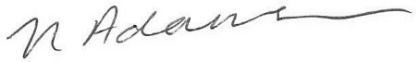 N Adams